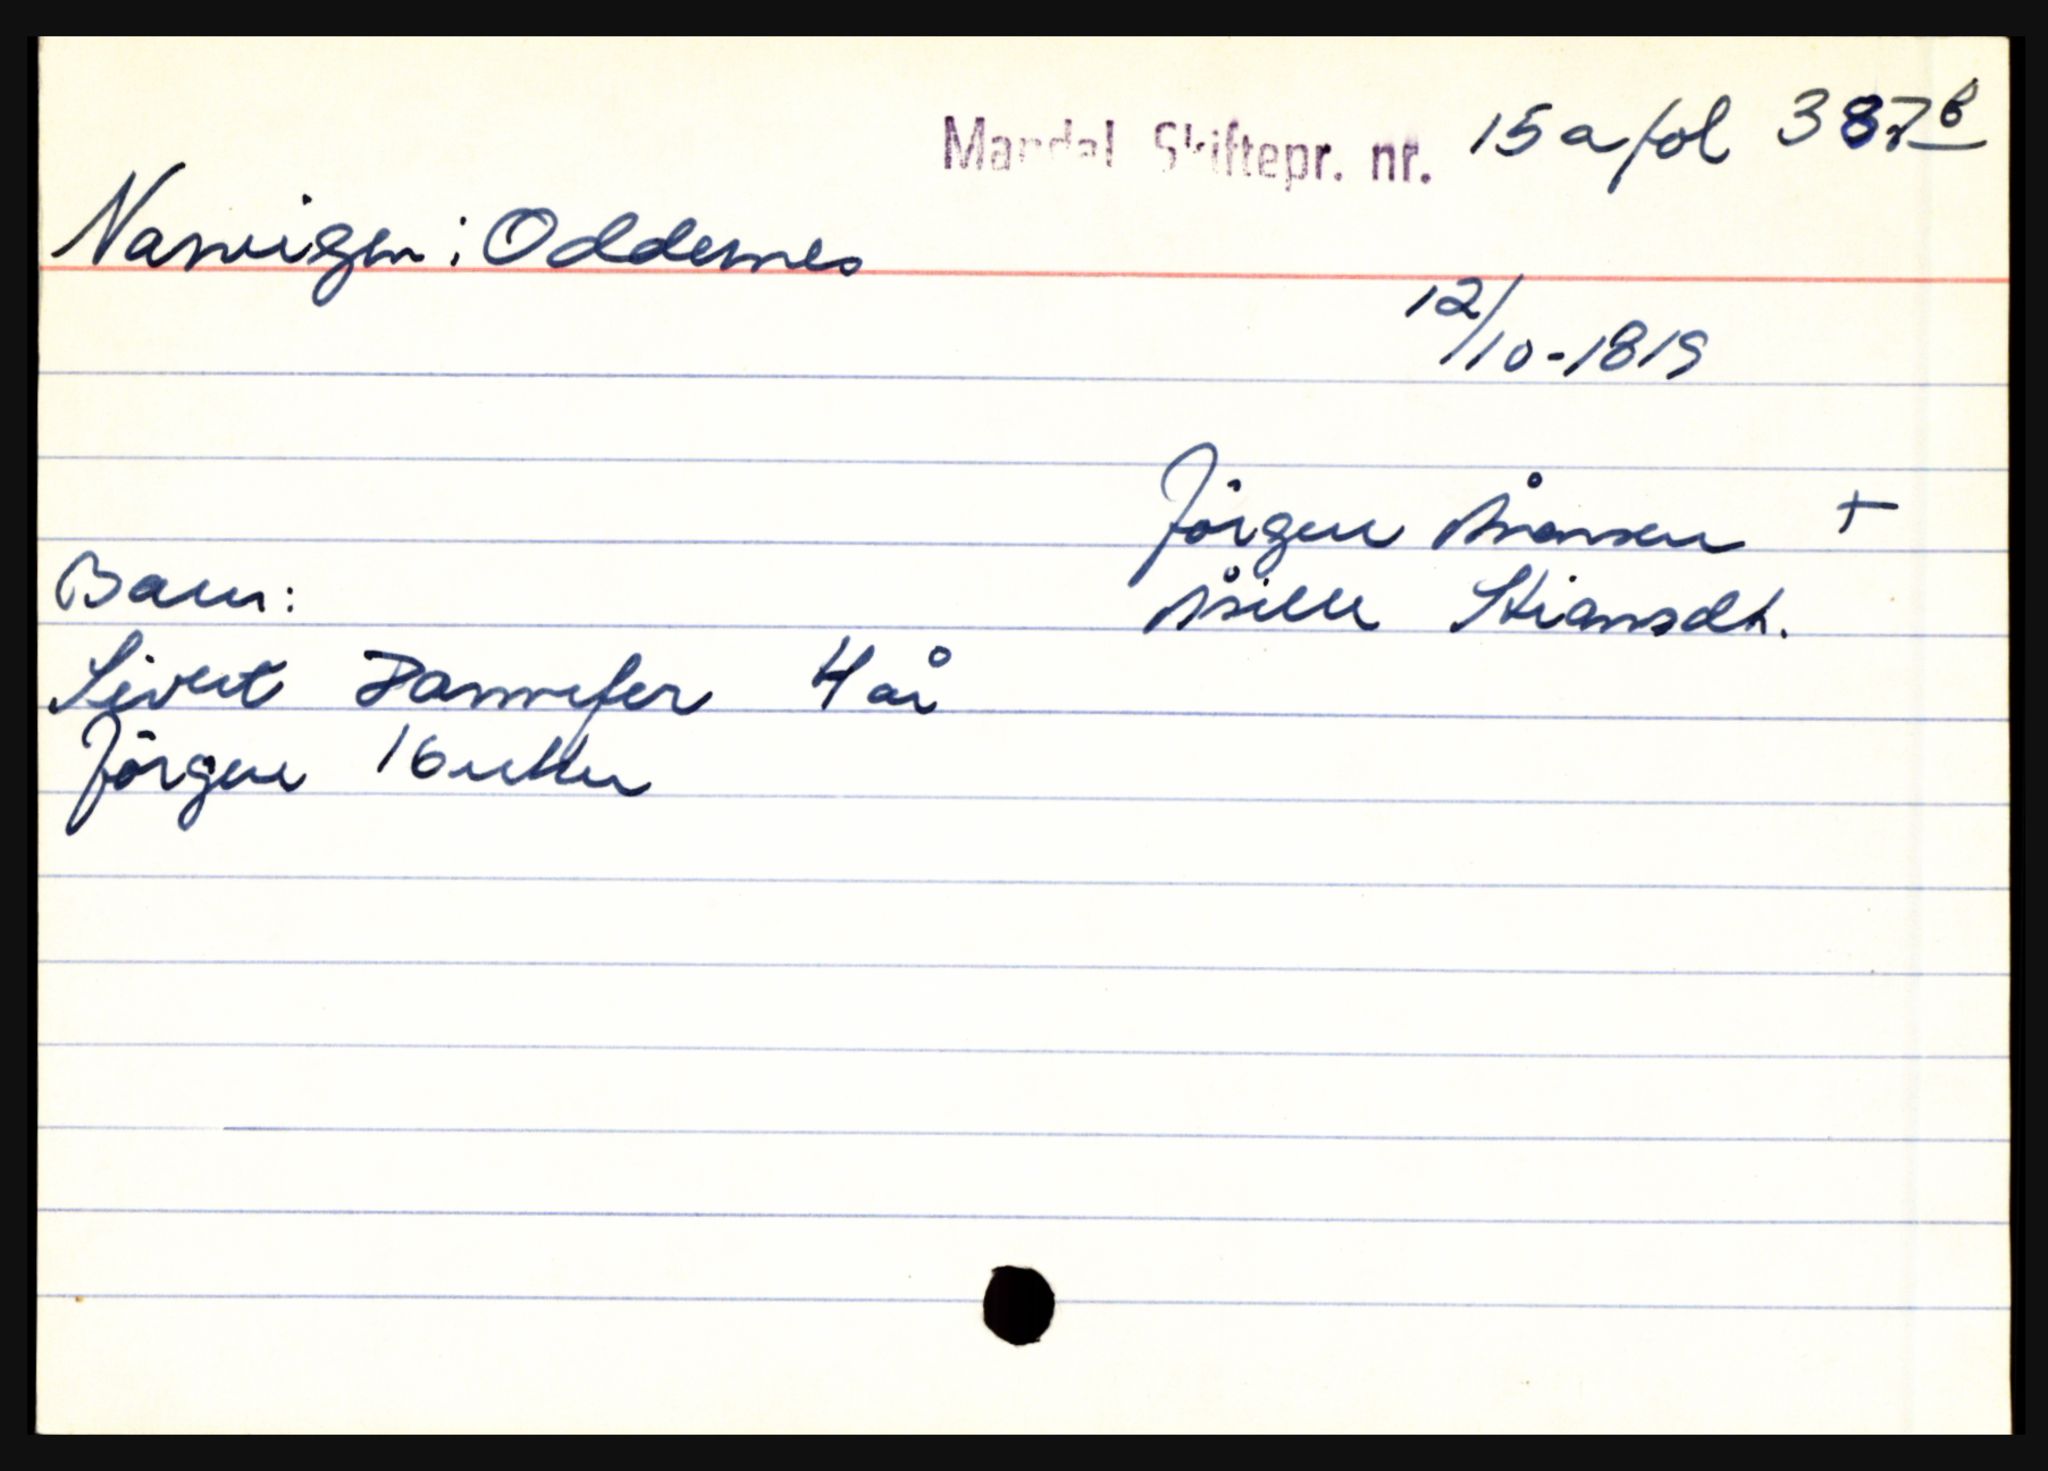 Mandal Skiftepr. nr. 15a fol 387b
Narvigen: Oddernes
12/10-1819
Jörgen Åsansen +
Åsille Stiansdt.
Barn:
Sivert Dannefer 4 år
Jörgen 16 uker